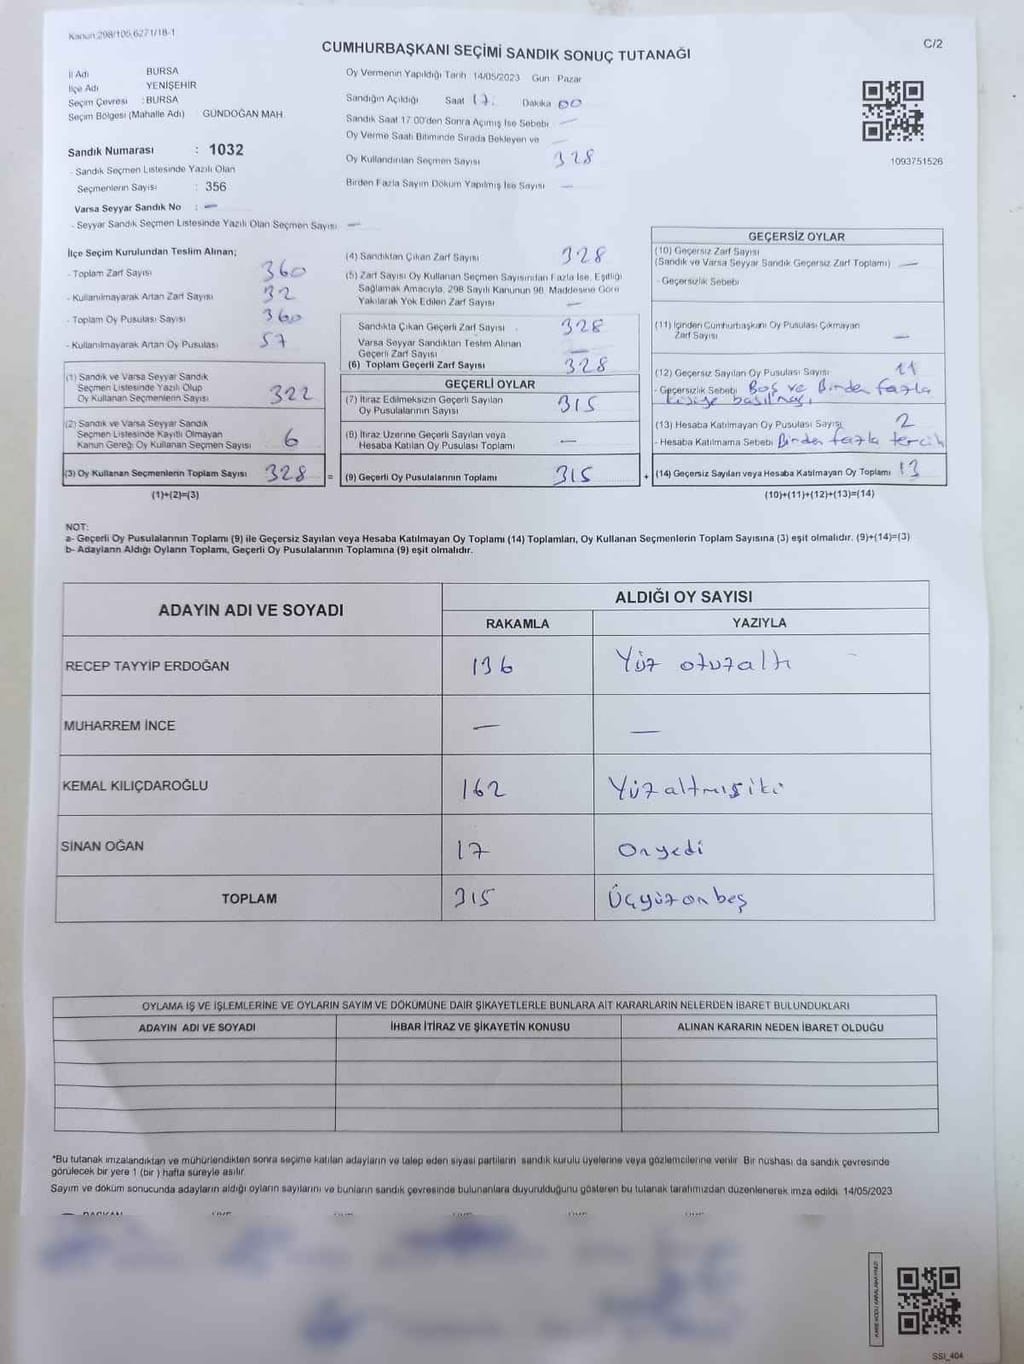 Kanun 298/106,6271/18-1
CUMHURBAŞKANI SEÇİMİ SANDIK SONUÇ TUTANAĞI
C/2
İl Adı BURSA
İlçe Adı YENİŞEHİR
Seçim Çevresi : BURSA
Seçim Bölgesi (Mahalle Adı) GÜNDOĞAN MAH.
Sandık Numarası : 1032
- Sandık Seçmen Listesinde Yazılı Olan
Seçmenlerin Sayısı : 356
Varsa Seyyar Sandık No : —
- Seyyar Sandık Seçmen Listesinde Yazılı Olan Seçmen Sayısı —
Oy Vermenin Yapıldığı Tarih 14/05/2023 Gün Pazar
Sandığın Açıldığı Saat 17. Dakika 00
Sandık Saat 17.00'den Sonra Açımış İse Sebebi —
Oy Verme Saati Bitiminde Sırada Bekleyen ve
Oy Kullandırılan Seçmen Sayısı 328
Birden Fazla Sayım Döküm Yapılmış İse Sayısı —
1093751526
İlçe Seçim Kurulundan Teslim Alınan;
- Toplam Zarf Sayısı 360
- Kullanılmayarak Artan Zarf Sayısı 32
- Toplam Oy Pusulası Sayısı 360
- Kullanılmayarak Artan Oy Pusulası 57
(1) Sandık ve Varsa Seyyar Sandık
Seçmen Listesinde Yazılı Olup
Oy Kullanan Seçmenlerin Sayısı 322
(2) Sandık ve Varsa Seyyar Sandık
Seçmen Listesinde Kayıtlı Olmayan
Kanun Gereği Oy Kullanan Seçmen Sayısı 6
(3) Oy Kullanan Seçmenlerin Toplam Sayısı 328 =
(1)+(2)=(3)
(4) Sandıktan Çıkan Zarf Sayısı 328
(5) Zarf Sayısı Oy Kullanan Seçmen Sayısından Fazla İse, Eşitliği
Sağlamak Amacıyla, 298 Sayılı Kanunun 98. Maddesine Göre
Yakılarak Yok Edilen Zarf Sayısı —
Sandıkta Çıkan Geçerli Zarf Sayısı 328
Varsa Seyyar Sandıktan Teslim Alınan
Geçerli Zarf Sayısı —
(6) Toplam Geçerli Zarf Sayısı 328
GEÇERLİ OYLAR
(7) İtiraz Edilmeksizin Geçerli Sayılan
Oy Pusulalarının Sayısı 315
(8) İtiraz Üzerine Geçerli Sayılan veya
Hesaba Katılan Oy Pusulası Toplamı —
(9) Geçerli Oy Pusulalarının Toplamı 315 +
GEÇERSİZ OYLAR
(10) Geçersiz Zarf Sayısı
(Sandık ve Varsa Seyyar Sandık Geçersiz Zarf Toplamı) —
- Geçersizlik Sebebi
(11) İçinden Cumhurbaşkanı Oy Pusulası Çıkmayan
Zarf Sayısı —
(12) Geçersiz Sayılan Oy Pusulası Sayısı 11
- Geçersizlik Sebebi Boş ve Birden fazla
kişiye basılmış
(13) Hesaba Katılmayan Oy Pusulası Sayısı 2
- Hesaba Katılmama Sebebi Birden fazla tercih
(14) Geçersiz Sayılan veya Hesaba Katılmayan Oy Toplamı 13
(10)+(11)+(12)+(13)=(14)
NOT:
a- Geçerli Oy Pusulalarının Toplamı (9) ile Geçersiz Sayılan veya Hesaba Katılmayan Oy Toplamı (14) Toplamları, Oy Kullanan Seçmenlerin Toplam Sayısına (3) eşit olmalıdır. (9)+(14)=(3)
b- Adayların Aldığı Oyların Toplamı, Geçerli Oy Pusulalarının Toplamına (9) eşit olmalıdır.
ADAYIN ADI VE SOYADI ALDIĞI OY SAYISI
RAKAMLA YAZIYLA
RECEP TAYYİP ERDOĞAN 136 Yüz otuzaltı
MUHARREM İNCE — —
KEMAL KILIÇDAROĞLU 162 Yüzaltmışiki
SİNAN OĞAN 17 Onyedi
TOPLAM 315 Üçyüzonbeş
OYLAMA İŞ VE İŞLEMLERİNE VE OYLARIN SAYIM VE DÖKÜMÜNE DAİR ŞİKAYETLERLE BUNLARA AİT KARARLARIN NELERDEN İBARET BULUNDUKLARI
ADAYIN ADI VE SOYADI İHBAR İTİRAZ VE ŞİKAYETİN KONUSU ALINAN KARARIN NEDEN İBARET OLDUĞU
*Bu tutanak imzalandıktan ve mühürlendikten sonra seçime katılan adayların ve talep eden siyasi partilerin sandık kurulu üyelerine veya gözlemcilerine verilir. Bir nüshası da sandık çevresinde
görülecek bir yere 1 (bir) hafta süreyle asılır.
Sayım ve döküm sonucunda adayların aldığı oyların sayılarını ve bunların sandık çevresinde bulunanlara duyurulduğunu gösteren bu tutanak tarafımızdan düzenlenerek imza edildi. 14/05/2023
SSI_404